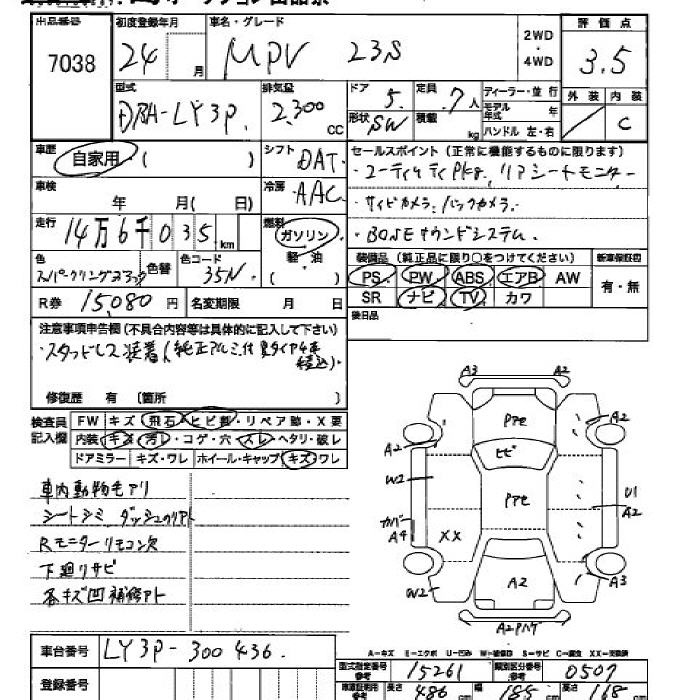 出品番号 初度登録年月 車名・グレード 評価点
7038 24 月 MPV 23S 2WD・4WD 3.5
型式 排気量 ドア 定員 ディーラー・並行 外装 内装
DBA-LY3P. 2,300 CC 5. 7人 モデル年式 年 C
形状 SW 積載 kg ハンドル 左・右
車歴 自家用 ( ) シフト DAT. セールスポイント (正常に機能するものに限ります)
・ユーティリティPkg. リアシートモニター
車検 年 月( 日) 冷房 AAC ・サイドカメラ.バックカメラ.
走行 14万6千035.km 燃料 ガソリン ・BOSEサウンドシステム.
軽・油
( )
色 スパークリングブラック 色替 色コード 35N 装備品 (純正品に限り○をつけてください) 新車保証書
PS PW ABS エアB AW 有・無
R券 15,080円 名変期限 月 日 SR ナビ TV カワ
後日品
注意事項申告欄 (不具合内容等は具体的に記入して下さい)
・スタッドレス装着(純正アルミ付夏タイヤ4本積込)
修復歴 有 〔箇所 〕
検査員記入欄 FW キズ・飛石・ヒビ割・リペア跡・X要
内装 キズ・汚レ・コゲ・穴・スレ・ヘタリ・破レ
ドアミラー キズ・ワレ ホイール・キャップ キズ・ワレ
車内動物毛アリ
シートシミ ダッシュクリアト
Rモニターリモコン欠
下廻リサビ
各キズ凹補修アト
A3 A2
Pアセ
A2 A2
ヒビ
W2 Pアセ U1
A2
カバー
A4 XX
W2 A2 A3
A2Pハゲ
A-キズ E-エクボ U-凹み W-補修跡 S-サビ C-腐食 XX-交換済
車台番号 LY3P-300436.
型式指定番号 参考 15261 類別区分番号 参考 0507
登録番号
車庫証明用 参考 長さ 486 cm 幅 185 cm 高さ 168 cm